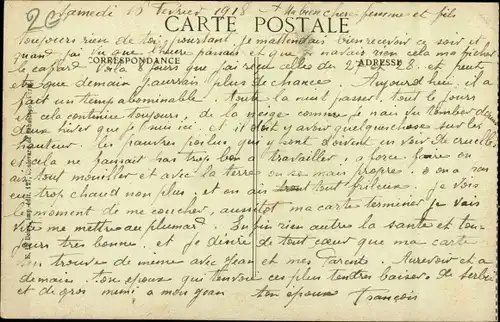 Samedi 15 Fevrier 1918
chere femme et fils
CARTE POSTALE
CORRESPONDANCE
ADRESSE
toujours rien de toi pourtant je mattendais bien recevoir a soir et
quand jai vu que lheure passait et que je navais rien cela ma fichu
le cafard voila 8 jours que jai recu celles du et peut
etre que demain jaurais plus de chance. Aujourdhui il a
fait un temp abominable toute la nuit passer tout le jours
et cela continue toujours, de la neige comme je nais vu tomber dans
deux hiver que je suis ici et il doit y avoir quelquechose sur les
hauteur. les pauvres poilus qui y sont doivent en voir de cruelles
et cela ne faisait pas trop bon a travailler, a force faire on
est tout mouiller et avec la terre on se mais propre. on a pas
eu trop chaud non plus, et on ais tout frileux je vois
le moment de me coucher, aussitot ma carte terminer je vais
vite me mettre au plumard. Enfin rien autre la sante et tou-
jours tres bonne et je desire de tout cœur que ma carte
vous trouve de meme avec Jean et mes Parents. Aurevoir et a
demain. ton epoux qui tenvoie ces plus tendres baisers de
et de gros mimi a mon Jean ton epoux Francois